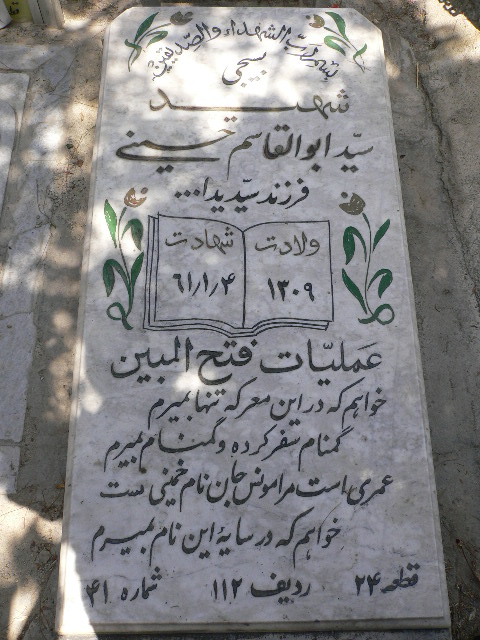 بسم رب الشهداء والصدیقین
بسیجی
شهید
سیّد ابوالقاسم حسینی
فرزند سیّد یدا...
ولادت شهادت
۱۳۰۹ ۶۱/۱/۴
عَملیّات فتح المبین
خواهم که در این معرکه تنها بمیرم
گمنام سفر کرده و گمنام بمیرم
عمری است مرا مونس جان نام خمینی ست
خواهم که در سایهٔ این نام بمیرم
قطعه ۲۴ ردیف ۱۱۲ شماره ۴۱